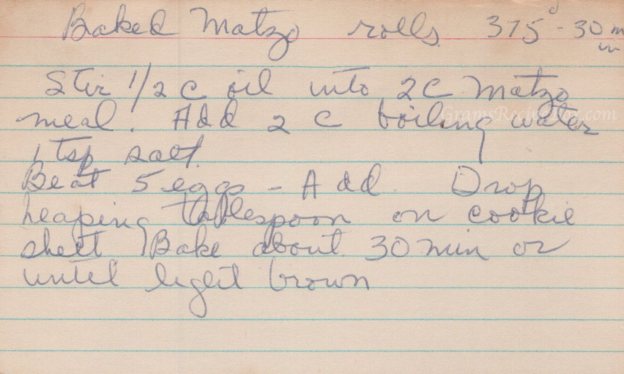 Baked Matzo rolls 375° - 30 min
Stir 1/2 C oil into 2C Matzo
meal. Add 2 C boiling water
1 tsp salt.
Beat 5 eggs - Add. Drop
heaping tablespoon on cookie
sheet. Bake about 30 min or
until light brown